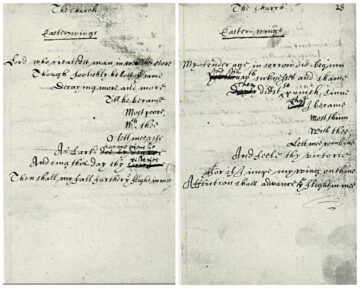 The Church
Easter-wings
Lord, who createdst man in store
Though foolishly he lost same
Decaying more and more
Till he became
Most poore
Wth thee
O let me rise
As Larks
And sing this day thy
Then shall my fall further ye flight in mee
The Church 25
Easter-wings
My tender age in sorrow did beginn
wth sicknesses and shame
didst so punish sinne
That I became
Most thinn
With thee
Let me combine
And feele thy victorie
For if I impe my wing on thine
Affliction shall advance ye flight in mee